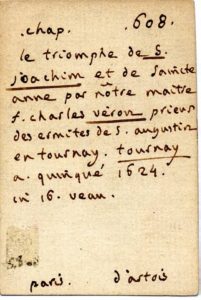 .chap. .608.
le triomphe de S.
joachim et de sainte
anne par nôtre maitre
f. charles véron prieur
des ermites de S. augustin
en tournay. tournay
a. quinqué 1624.
in 16. veau.
paris. d'artois